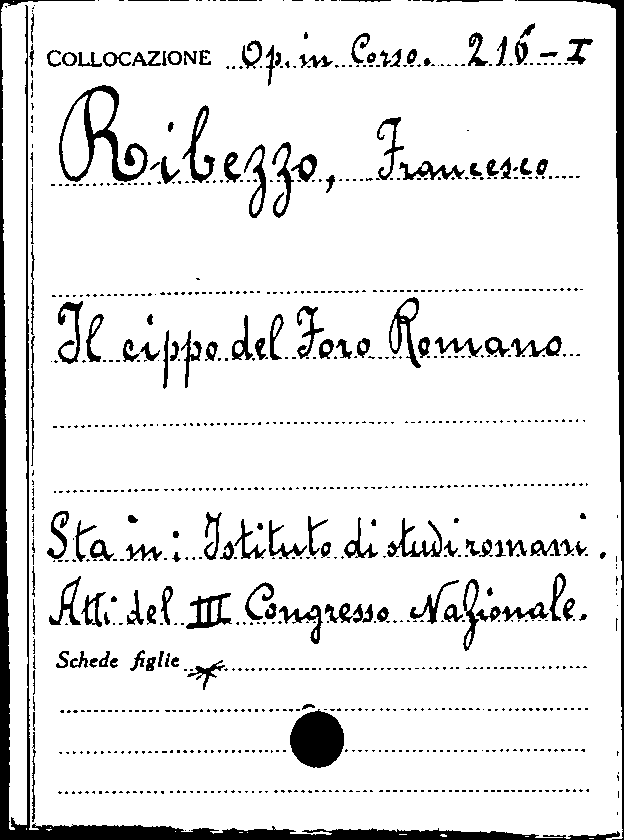 COLLOCAZIONE Op. in Corso. 216-I
Ribezzo, Francesco
Il cippo del Foro Romano
Sta in: Istituto di studi romani.
Atti del III Congresso Nazionale.
Schede figlie